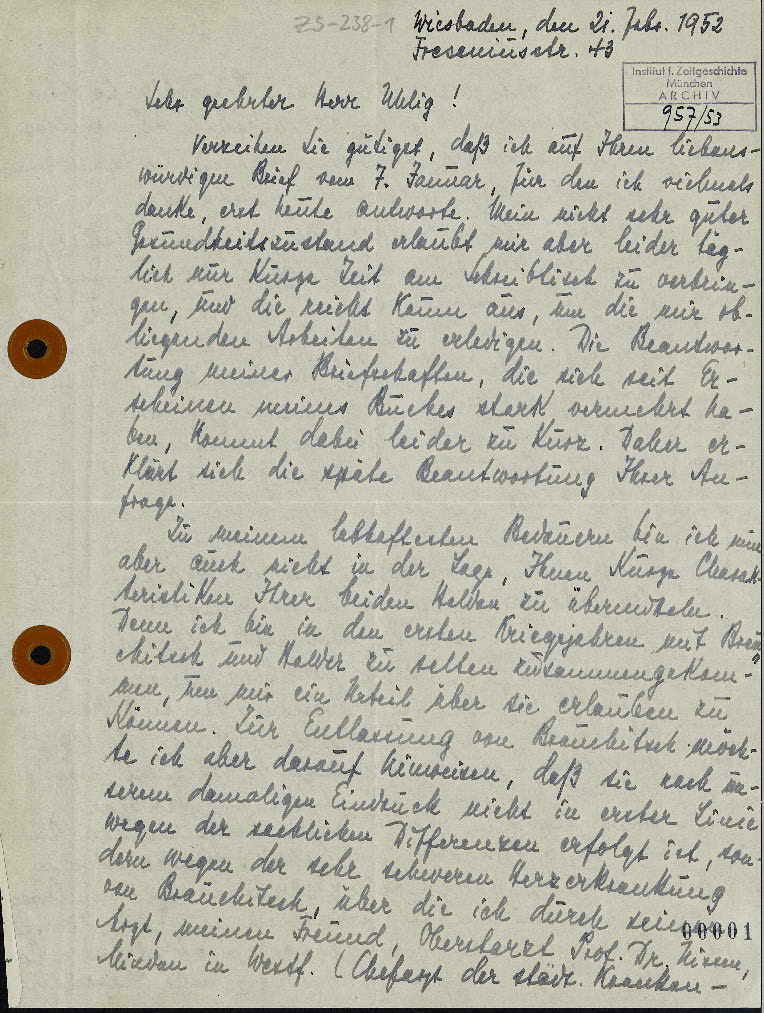 ZS-238-1
Wiesbaden, den 21. Febr. 1952
Freseniusstr. 43
Institut f. Zeitgeschichte
München
ARCHIV
957/53
Sehr geehrter Herr Uhlig!
Verzeihen Sie gütigst, daß ich auf Ihren liebens-
würdigen Brief vom 7. Januar, für den ich vielmals
danke, erst heute antworte. Mein nicht sehr guter
Gesundheitszustand erlaubt mir aber leider täg-
lich nur kurze Zeit am Schreibtisch zu verbrin-
gen, und die reicht kaum aus, um die mir ob-
liegenden Arbeiten zu erledigen. Die Beantwor-
tung meiner Briefschaften, die sich seit Er-
scheinen meines Buches stark vermehrt ha-
ben, kommt dabei leider zu kurz. Daher er-
klärt sich die späte Beantwortung Ihrer An-
frage.
Zu meinem lebhaftesten Bedauern bin ich nun
aber auch nicht in der Lage, Ihnen kurze Charak-
teristiken Ihrer beiden Helden zu übermitteln.
Denn ich bin in den ersten Kriegsjahren mit Brau-
chitsch und Halder zu selten zusammengekom-
men, um mir ein Urteil über sie erlauben zu
können. Zur Entlassung von Brauchitsch möch-
te ich aber darauf hinweisen, daß sie nach un-
serem damaligen Eindruck nicht in erster Linie
wegen der sachlichen Differenzen erfolgt ist, son-
dern wegen der sehr schweren Herzerkrankung
von Brauchitsch, über die ich durch seinen
Arzt, meinen Freund, Oberstarzt Prof. Dr. Nissen,
Minden in Westf. (Chefarzt der städt. Kranken-
00001